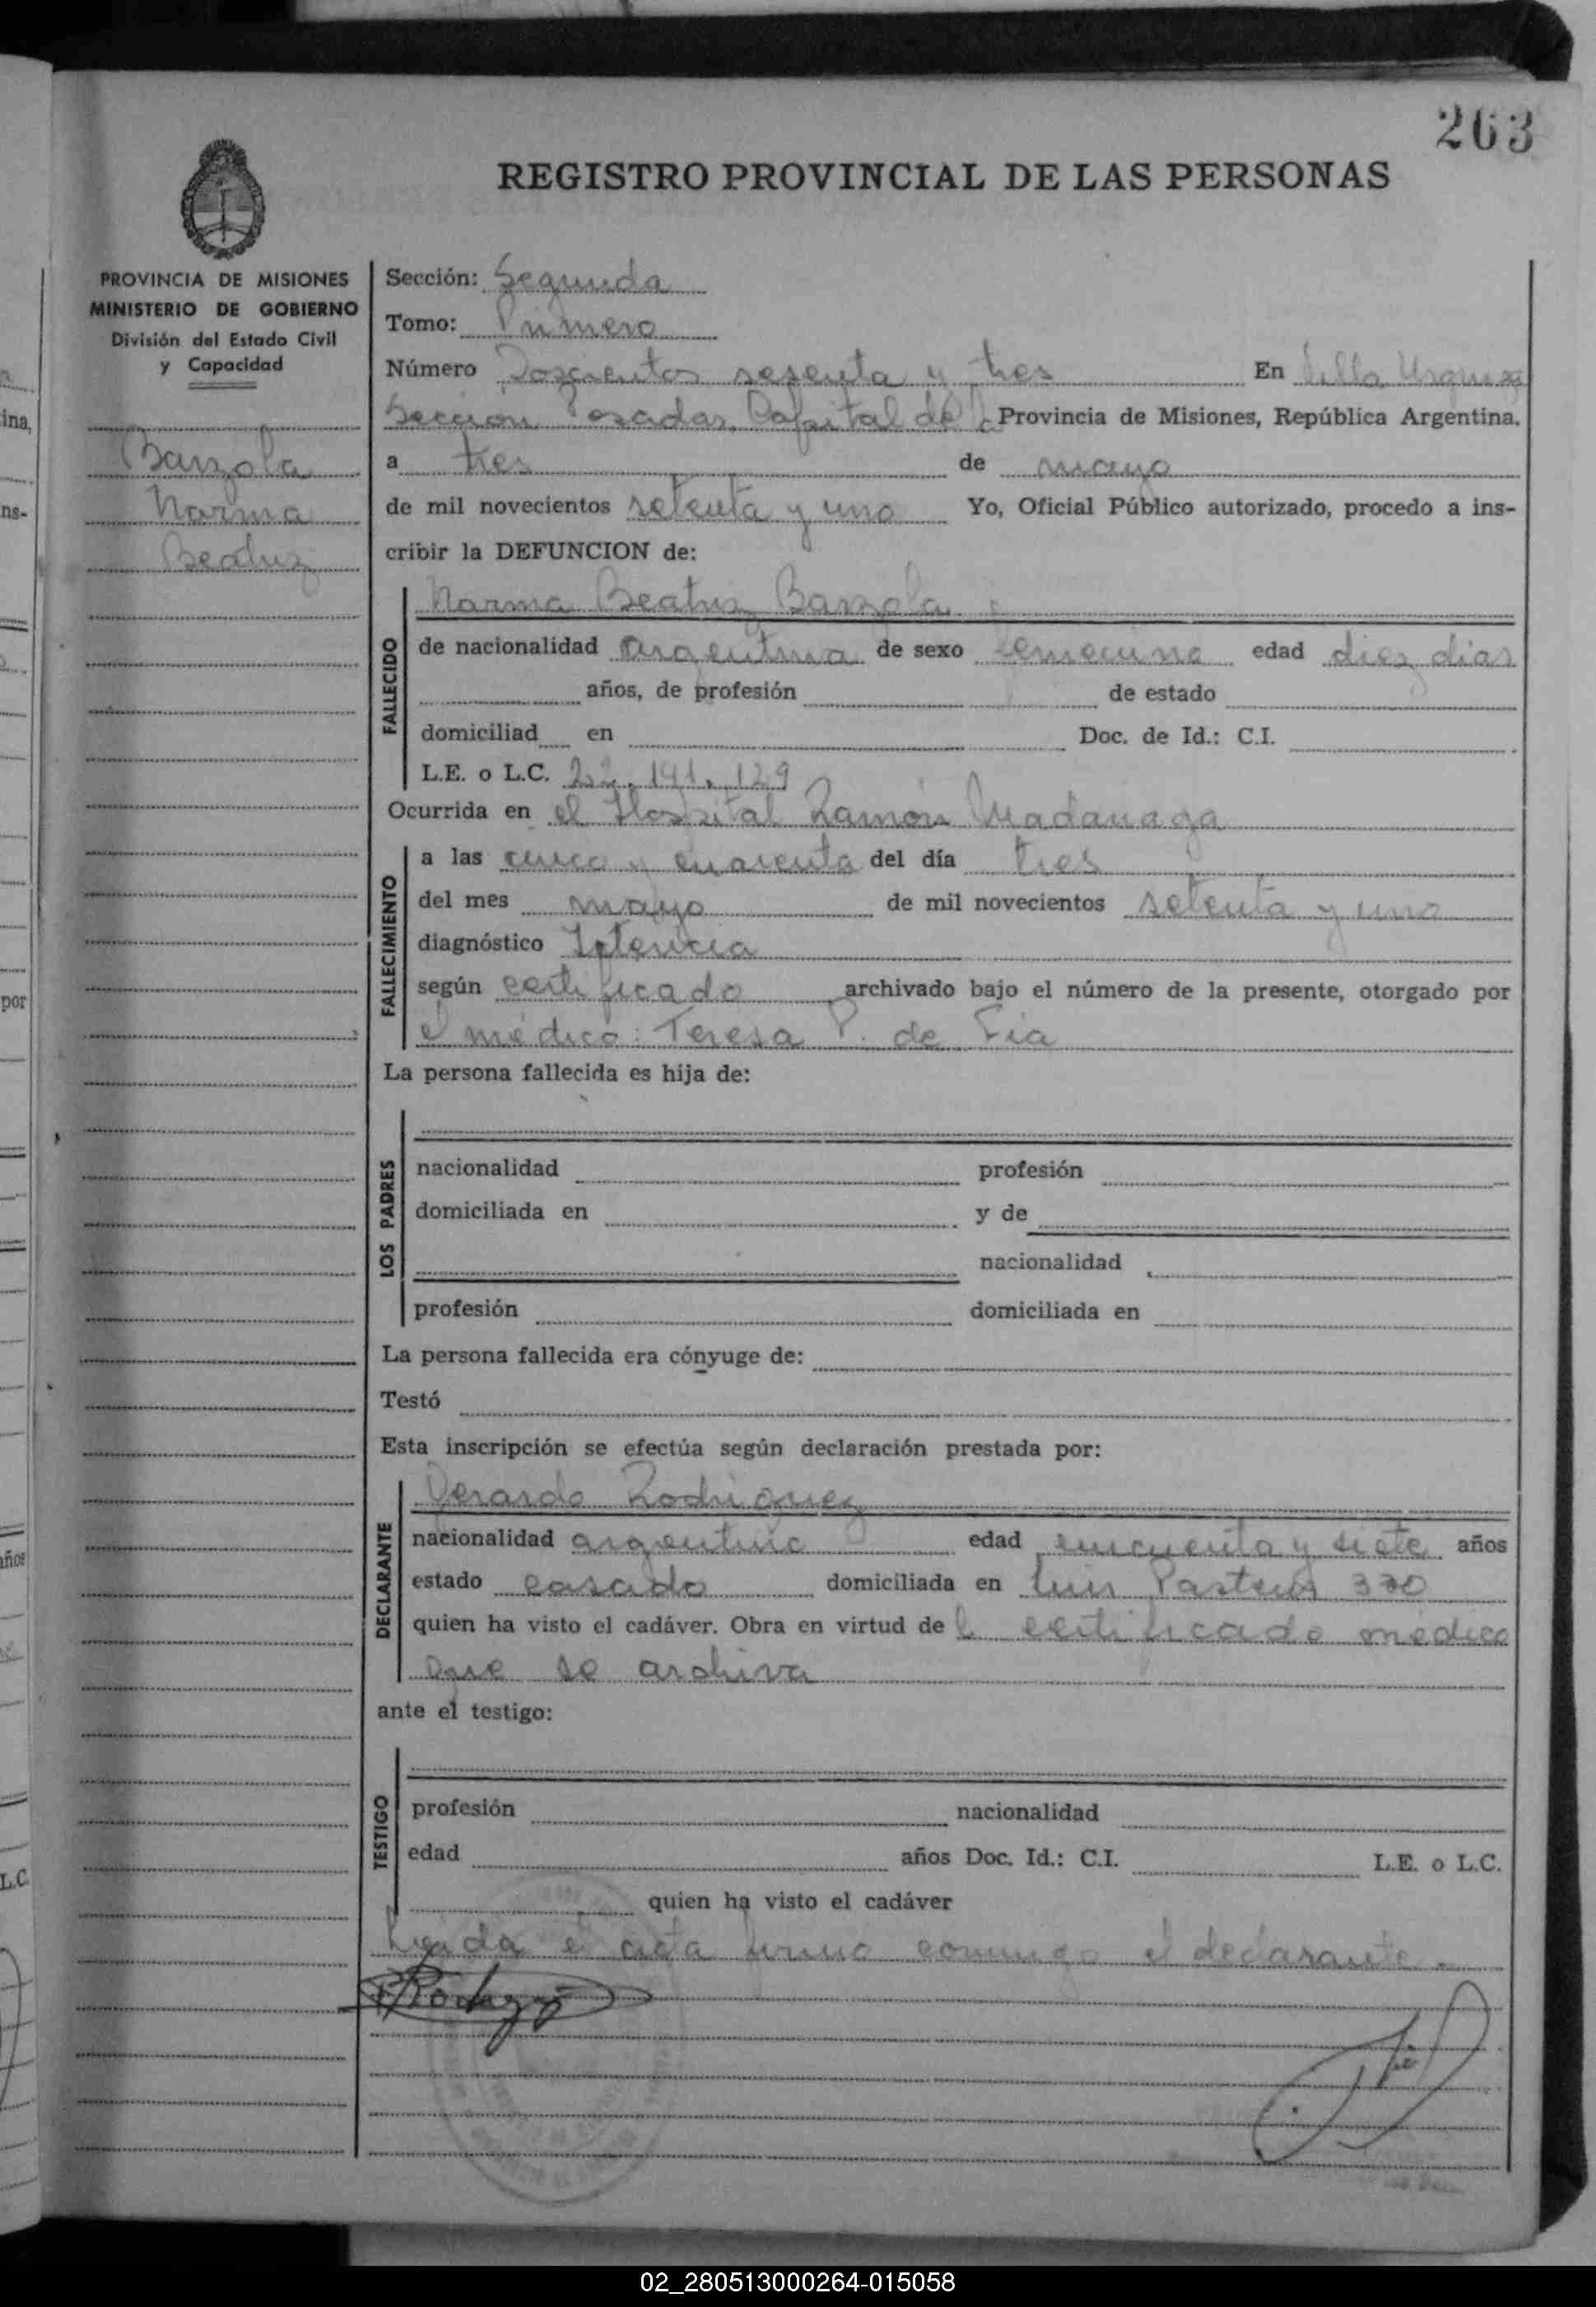 263
REGISTRO PROVINCIAL DE LAS PERSONAS
PROVINCIA DE MISIONES
MINISTERIO DE GOBIERNO
División del Estado Civil
y Capacidad
Barzola
Norma
Beatriz
Sección: Segunda
Tomo: Primero
Número Doscientos sesenta y tres En Villa Urquiza
Sección Posadas, Capital de la Provincia de Misiones, República Argentina,
a tres de mayo
de mil novecientos setenta y uno Yo, Oficial Público autorizado, procedo a ins-
cribir la DEFUNCION de:
Norma Beatriz Barzola
FALLECIDO
de nacionalidad argentina de sexo femenino edad diez dias
años, de profesión de estado
domiciliad en Doc. de Id.: C.I.
L.E. o L.C. 22.191.129
Ocurrida en el Hospital Ramón Madariaga
FALLECIMIENTO
a las cinco y cuarenta del día tres
del mes mayo de mil novecientos setenta y uno
diagnóstico Ictericia
según certificado archivado bajo el número de la presente, otorgado por
el médico: Teresa P. de
La persona fallecida es hija de:
LOS PADRES
nacionalidad profesión
domiciliada en y de
nacionalidad
profesión domiciliada en
La persona fallecida era cónyuge de:
Testó
Esta inscripción se efectúa según declaración prestada por:
DECLARANTE
Gerardo Rodriguez
nacionalidad argentino edad cincuenta y siete años
estado casado domiciliada en Luis Pasteur 300
quien ha visto el cadáver. Obra en virtud de l certificado médico
que se archiva
ante el testigo:
TESTIGO
profesión nacionalidad
edad años Doc. Id.: C.I. L.E. o L.C.
quien ha visto el cadáver
Leida el acta firmó conmigo el declarante.
02_280513000264-015058